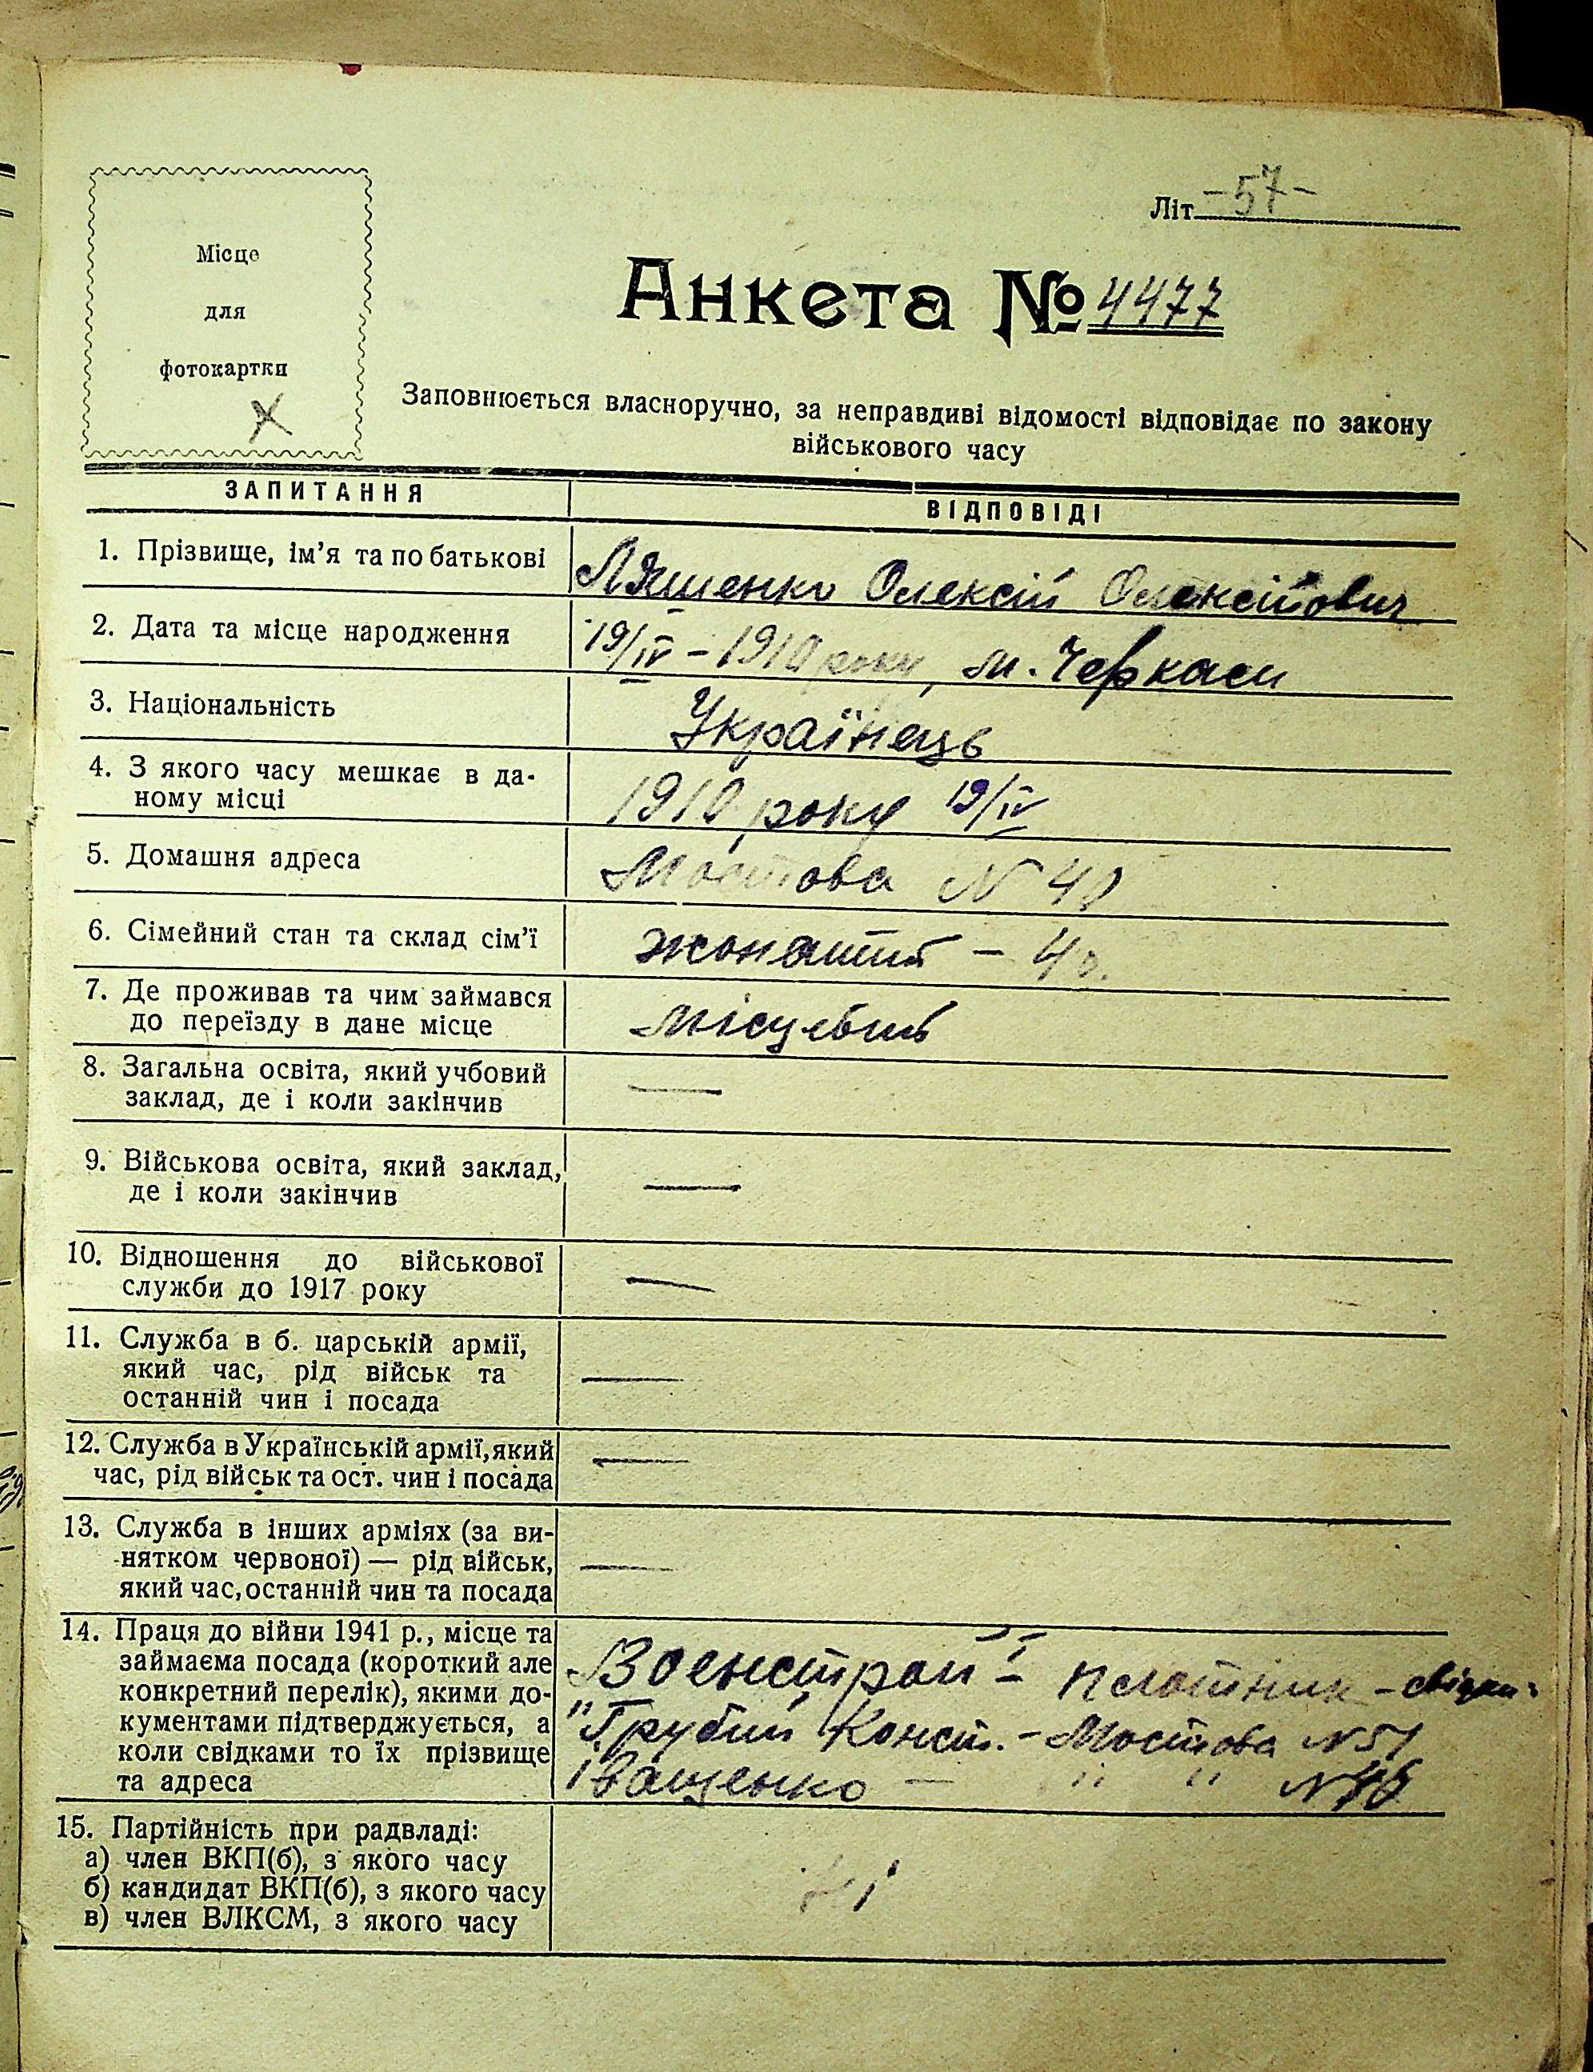 Літ -57-
Місце
для
фотокартки
Анкета № 4477
Заповнюється власноручно, за неправдиві відомості відповідає по закону
військового часу
ЗАПИТАННЯ
ВІДПОВІДІ
1. Прізвище, ім’я та по батькові
Ляшенко Олексій Олексійович
2. Дата та місце народження
19/IV – 1910 року, м. Черкаси
3. Національність
Українець
4. З якого часу мешкає в да-
ному місці
1910 року 19/IV
5. Домашня адреса
Мостова N 40
6. Сімейний стан та склад сім’ї
жонатий – 4
7. Де проживав та чим займався
до переїзду в дане місце
місцевий
8. Загальна освіта, який учбовий
заклад, де і коли закінчив
—
9. Військова освіта, який заклад,
де і коли закінчив
—
10. Відношення до військової
служби до 1917 року
—
11. Служба в б. царській армії,
який час, рід військ та
останній чин і посада
—
12. Служба в Українській армії, який
час, рід військ та ост. чин і посада
—
13. Служба в інших арміях (за ви-
нятком червоної) — рід військ,
який час, останній чин та посада
—
14. Праця до війни 1941 р., місце та
займаєма посада (короткий але
конкретний перелік), якими до-
кументами підтверджується, а
коли свідками то їх прізвище
та адреса
Военстрой – плотник – свідки:
Грубий Конст. - Мостова N 51
Іващенко — " " N
15. Партійність при радвладі:
а) член ВКП(б), з якого часу
б) кандидат ВКП(б), з якого часу
в) член ВЛКСМ, з якого часу
ні